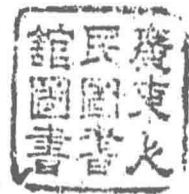 廣東人
民圖書
館圖書